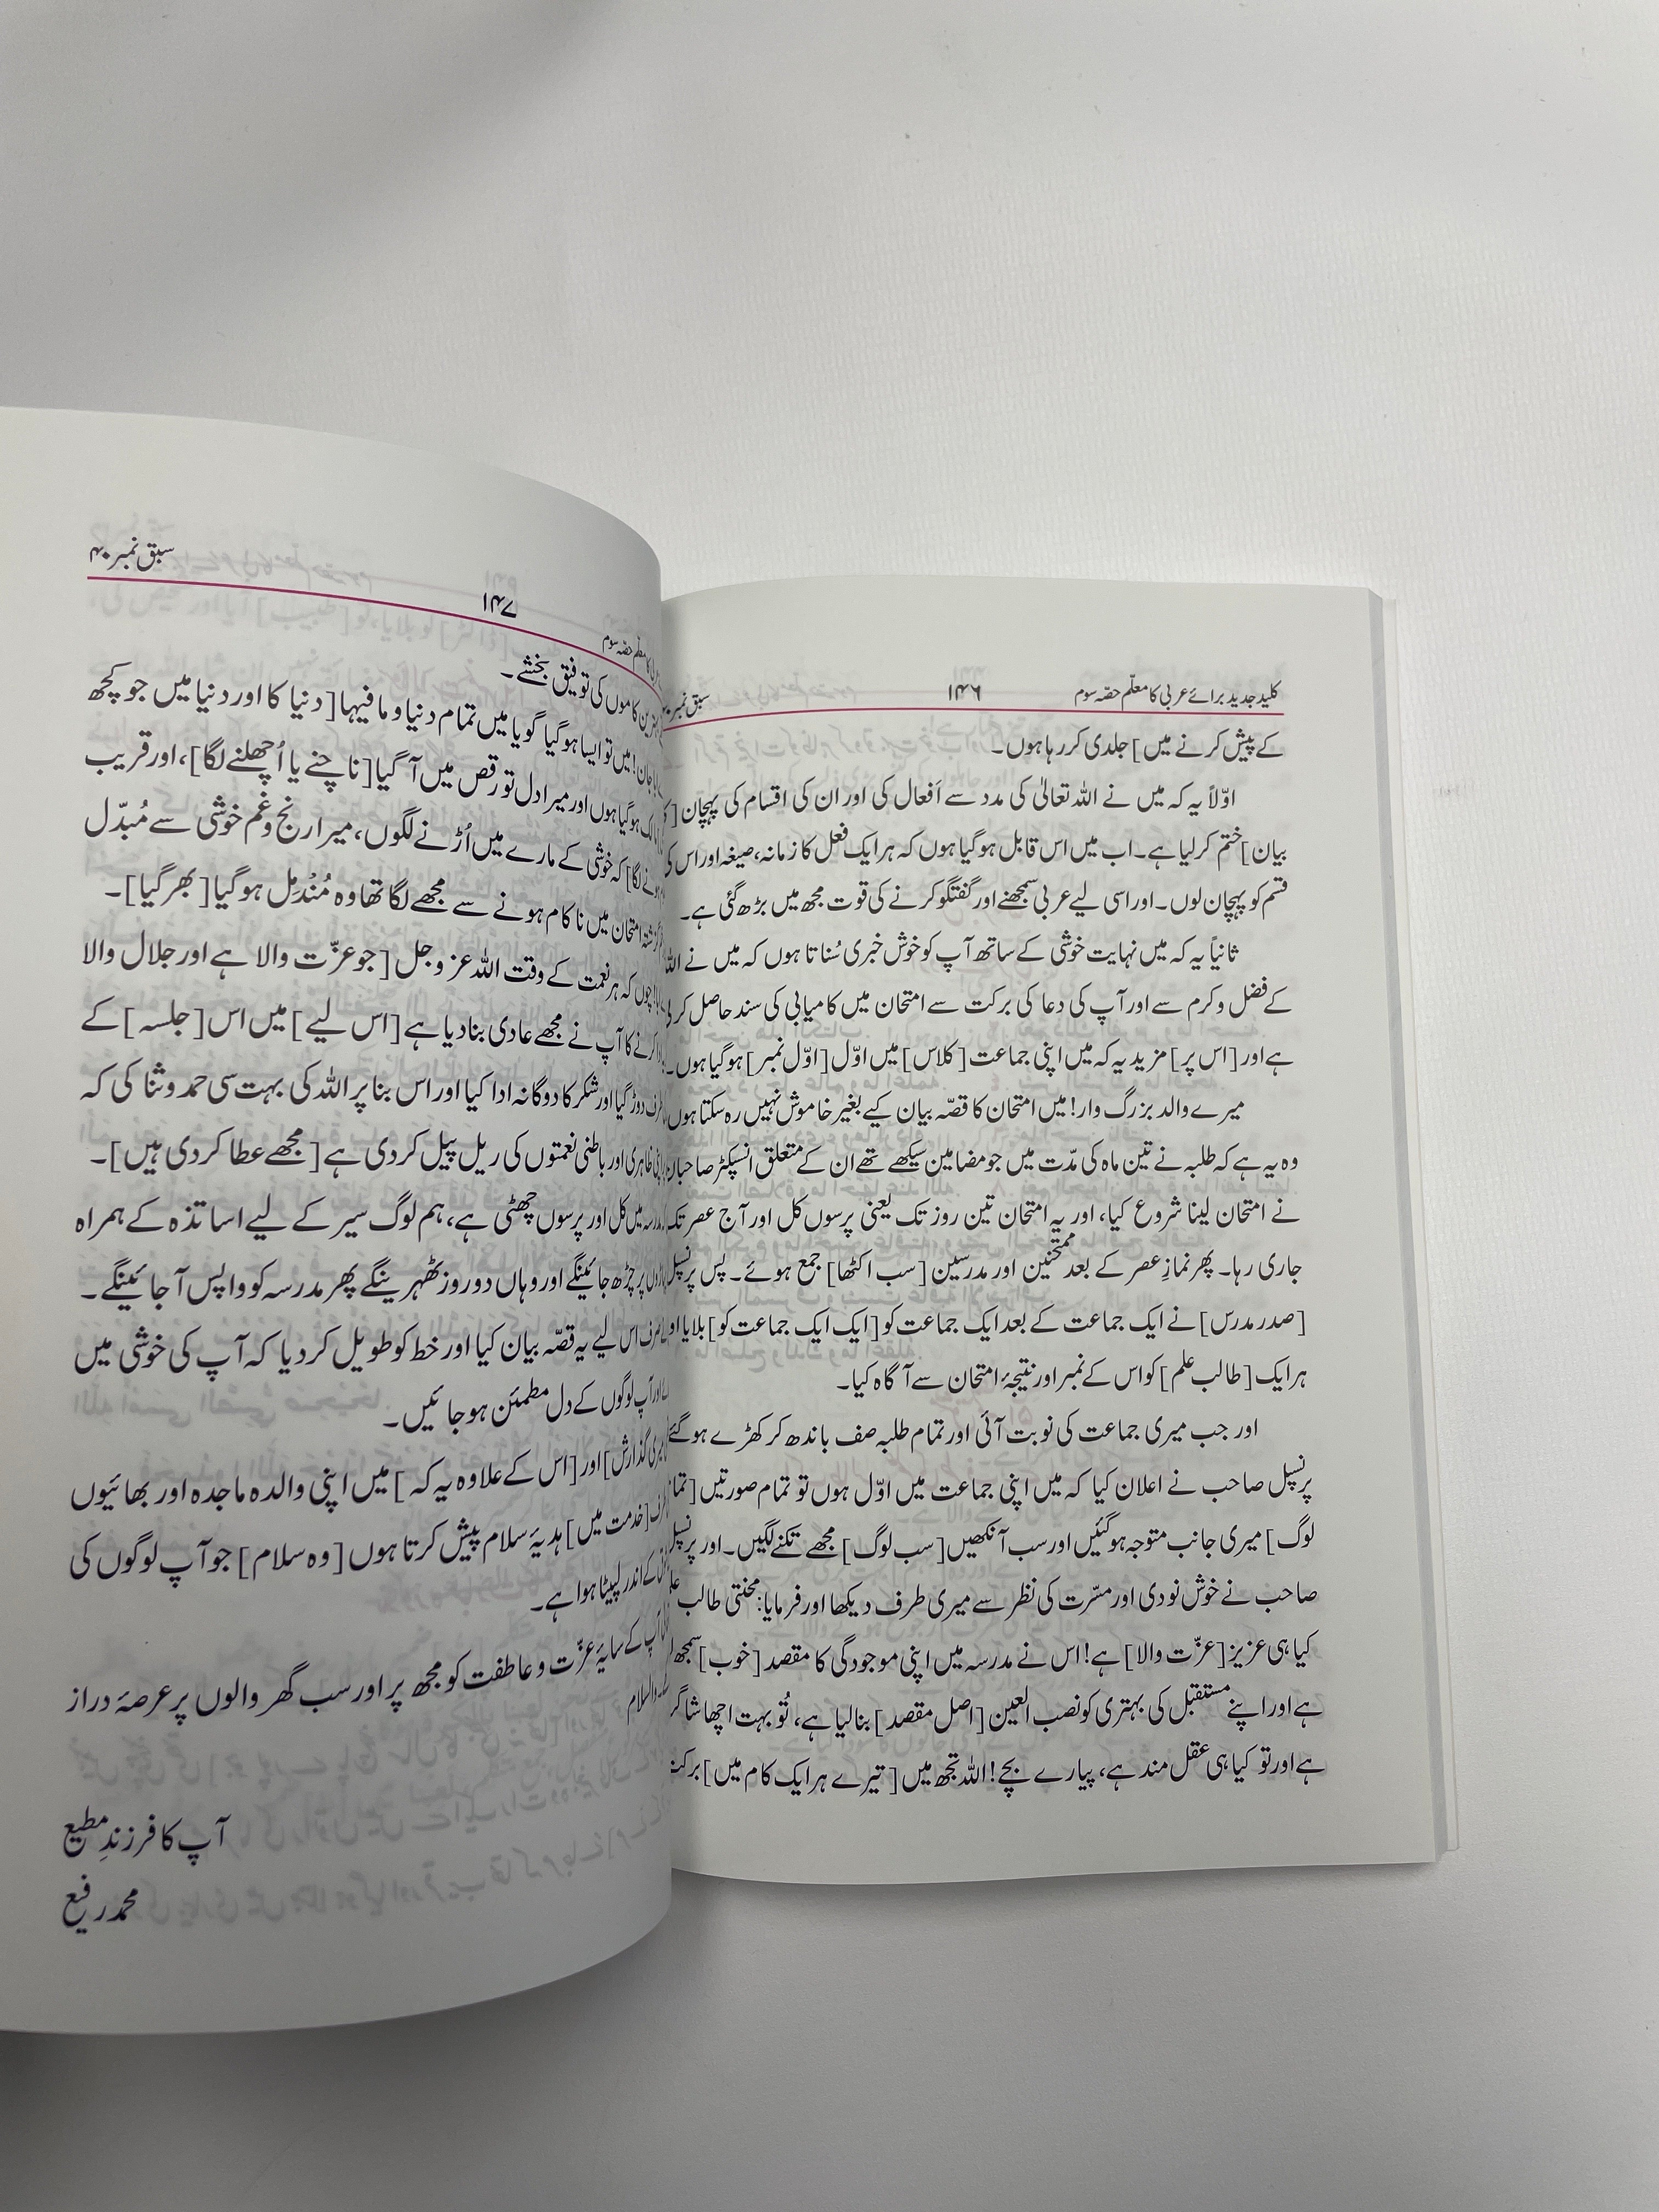 کلید جدید برائے عربی کا معلّم حصّہ سوم ۱۴۶ سبق نمبر
کے پیش کرنے میں] جلدی کر رہا ہوں۔
اوّلاً یہ کہ میں نے اللہ تعالیٰ کی مدد سے اَفعال کی اور ان کی اقسام کی پہچان
بیان] ختم کر لیا ہے۔ اب میں اس قابل ہوگیا ہوں کہ ہر ایک فعل کا زمانہ، صیغہ اور اس کی
قسم کو پہچان لوں۔ اور اسی لیے عربی سمجھنے اور گفتگو کرنے کی قوت مجھ میں بڑھ گئی ہے۔
ثانیاً یہ کہ میں نہایت خوشی کے ساتھ آپ کو خوش خبری سُناتا ہوں کہ میں نے اللہ
کے فضل و کرم سے اور آپ کی دعا کی برکت سے امتحان میں کامیابی کی سند حاصل کرلی
ہے اور [اس پر] مزید یہ کہ میں اپنی جماعت [کلاس] میں اوّل [اوّل نمبر] ہوگیا ہوں۔
میرے والد بزرگ وار! میں امتحان کا قصّہ بیان کیے بغیر خاموش نہیں رہ سکتا ہوں
وہ یہ ہے کہ طلبہ نے تین ماہ کی مدّت میں جو مضامین سیکھے تھے ان کے متعلق انسپکٹر صاحبان
نے امتحان لینا شروع کیا، اور یہ امتحان تین روز تک یعنی پرسوں کل اور آج عصر تک
جاری رہا۔ پھر نمازِ عصر کے بعد ممتحنین اور مدرسین [سب اکٹھا] جمع ہوئے۔ پس پرنسپل
[صدر مدرس] نے ایک جماعت کے بعد ایک جماعت کو [ایک ایک جماعت کو] بلایا اور
ہر ایک [طالب علم] کو اس کے نمبر اور نتیجۂ امتحان سے آگاہ کیا۔
اور جب میری جماعت کی نوبت آئی اور تمام طلبہ صف باندھ کر کھڑے ہوگئے
پرنسپل صاحب نے اعلان کیا کہ میں اپنی جماعت میں اوّل ہوں تو تمام صورتیں [تمام
لوگ] میری جانب متوجہ ہوگئیں اور سب آنکھیں [سب لوگ] مجھے تکنے لگیں۔ اور پرنسپل
صاحب نے خوش نودی اور مسرّت کی نظر سے میری طرف دیکھا اور فرمایا: محنتی طالب علم
کیا ہی عزیز [عزّت والا] ہے! اس نے مدرسہ میں اپنی موجودگی کا مقصد [خوب] سمجھ
ہے اور اپنے مستقبل کی بہتری کو نصب العین [اصل مقصد] بنالیا ہے، تُو بہت اچھا شاگرد
ہے اور تو کیا ہی عقل مند ہے، پیارے بچے! اللہ تجھ میں [تیرے ہر ایک کام میں] برکت
معلّم حصّہ سوم ۱۴۷ سبق نمبر ۴۰
کاموں کی توفیق بخشے۔
جان! میں تو ایسا ہوگیا گویا میں تمام دنیا و مافیہا [دنیا کا اور دنیا میں جو کچھ
ہوگیا ہوں اور میرا دل تو رقص میں آگیا [ناچنے یا اُچھلنے لگا]، اور قریب
لگا] کہ خوشی کے مارے میں اُڑنے لگوں، میرا رنج و غم خوشی سے مُبدّل
امتحان میں ناکام ہونے سے مجھے لگا تھا وہ مُنْدمِل ہوگیا [بھر گیا]۔
چوں کہ ہر نعمت کے وقت اللہ عز و جل [جو عزّت والا ہے اور جلال والا
کرنے کا آپ نے مجھے عادی بنا دیا ہے [اس لیے] میں اس [جلسہ] کے
دوڑ گیا اور شکر کا دوگانہ ادا کیا اور اس بنا پر اللہ کی بہت سی حمد و ثنا کی کہ
ظاہری اور باطنی نعمتوں کی ریل پیل کر دی ہے [مجھے عطا کر دی ہیں]۔
میں کل اور پرسوں چھٹی ہے، ہم لوگ سیر کے لیے اساتذہ کے ہمراہ
پر چڑھ جائینگے اور وہاں دو روز ٹھہرینگے پھر مدرسہ کو واپس آجائینگے۔
اس لیے یہ قصّہ بیان کیا اور خط کو طویل کر دیا کہ آپ کی خوشی میں
اور آپ لوگوں کے دل مطمئن ہوجائیں۔
گذارش] اور [اس کے علاوہ یہ کہ] میں اپنی والدہ ماجدہ اور بھائیوں
[خدمت میں] ہدیۂ سلام پیش کرتا ہوں [وہ سلام] جو آپ لوگوں کی
کے اندر لپیٹا ہوا ہے۔
آپ کے سایۂ عزّت و عاطفت کو مجھ پر اور سب گھر والوں پر عرصۂ دراز
والسلام
آپ کا فرزندِ مطیع
محمد رفیع